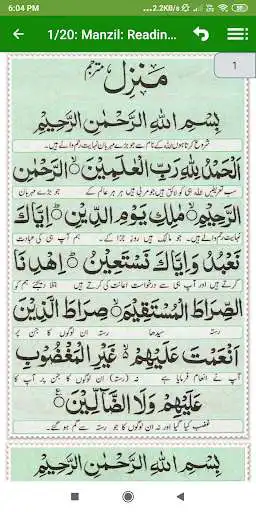 6:04 PM
...2.2KB/s
1/20: Manzil: Readin...
1
منزل مترجم
بِسْمِ اللهِ الرَّحْمٰنِ الرَّحِيْمِ
شروع کرتا ہوں اللہ کے نام سے جو بڑے مہربان نہایت رحم والے ہیں۔
اَلْحَمْدُ لِلّٰهِ رَبِّ الْعٰلَمِيْنَ ۙ الرَّحْمٰنِ
سب تعریفیں اللہ ہی کو لائق ہیں جو مربی ہیں ہر ہر عالم کے جو بڑے مہربان
الرَّحِيْمِ ۙ مٰلِكِ يَوْمِ الدِّيْنِ ؕ اِيَّاكَ
نہایت رحم والے ہیں۔ جو مالک ہیں روز جزا کے۔ ہم آپ ہی کی عبادت
نَعْبُدُ وَاِيَّاكَ نَسْتَعِيْنُ ؕ اِهْدِنَا
کرتے ہیں اور آپ ہی سے درخواست اعانت کی کرتے ہیں۔ بتلا دیجئے ہم کو
الصِّرَاطَ الْمُسْتَقِيْمَ ۙ صِرَاطَ الَّذِيْنَ
رستہ سیدھا رستہ ان لوگوں کا جن پر
اَنْعَمْتَ عَلَيْهِمْ ۙ غَيْرِ الْمَغْضُوْبِ
آپ نے انعام فرمایا ہے نہ (رستہ) ان لوگوں کا جن پر آپ کا
عَلَيْهِمْ وَلَا الضَّآلِّيْنَ
غضب کیا گیا اور نہ ان لوگوں کا جو رستہ سے گم ہو گئے۔
بِسْمِ اللهِ الرَّحْمٰنِ الرَّحِيْمِ